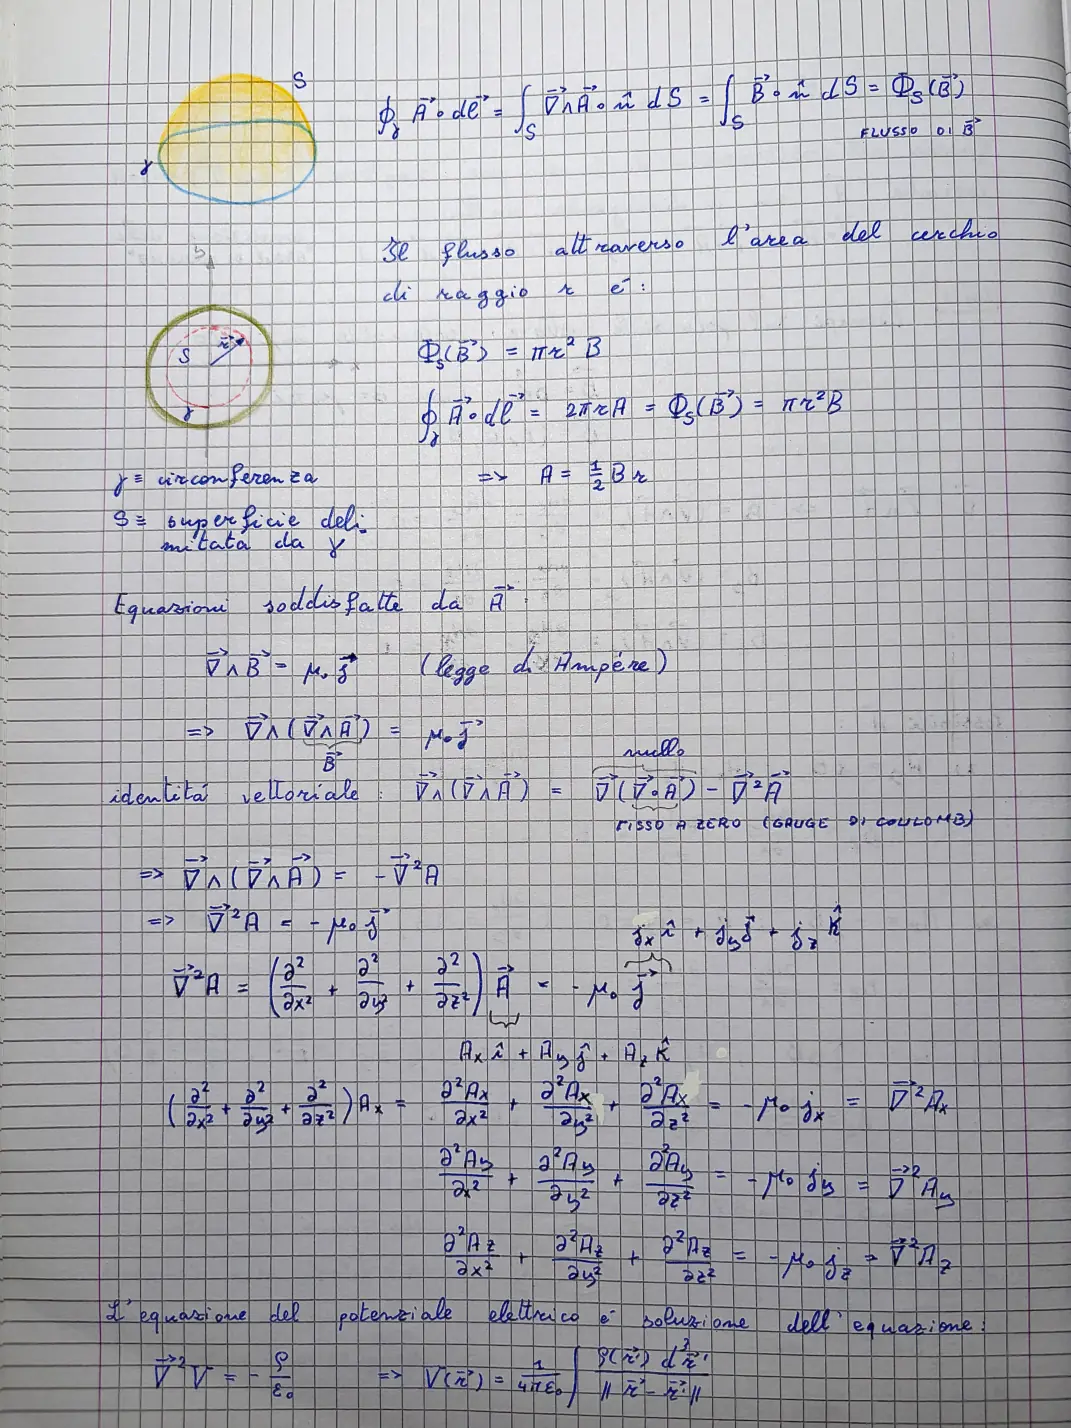 S
∮_γ A⃗ • dl⃗ = ∫_S ∇⃗∧A⃗ • n̂ dS = ∫_S B⃗ • n̂ dS = Φ_S(B⃗)
FLUSSO DI B⃗
γ
Il flusso attraverso l'area del cerchio
di raggio r è:
r⃗
S
Φ_S(B⃗) = πr² B
γ
∮_γ A⃗ • dl⃗ = 2πrA = Φ_S(B⃗) = πr²B
γ ≡ circonferenza
=> A = 1/2 B r
S ≡ superficie deli-
mitata da γ
Equazioni soddisfatte da A⃗:
∇⃗∧B⃗ = μ₀ j⃗ (legge di Ampére)
=> ∇⃗∧(∇⃗∧A⃗) = μ₀ j⃗
B⃗
nullo
identitá vettoriale: ∇⃗∧(∇⃗∧A⃗) = ∇⃗(∇⃗•A⃗) - ∇⃗²A⃗
FISSO A ZERO (GAUGE DI COULOMB)
=> ∇⃗∧(∇⃗∧A⃗) = -∇⃗²A
=> ∇⃗²A = -μ₀ j⃗
j_x î + j_y ĵ + j_z k̂
∇⃗²A = (∂²/∂x² + ∂²/∂y² + ∂²/∂z²) A⃗ = -μ₀ j⃗
A_x î + A_y ĵ + A_z k̂
(∂²/∂x² + ∂²/∂y² + ∂²/∂z²) A_x = ∂²A_x/∂x² + ∂²A_x/∂y² + ∂²A_x/∂z² = -μ₀ j_x = ∇⃗²A_x
∂²A_y/∂x² + ∂²A_y/∂y² + ∂²A_y/∂z² = -μ₀ j_y = ∇⃗²A_y
∂²A_z/∂x² + ∂²A_z/∂y² + ∂²A_z/∂z² = -μ₀ j_z = ∇⃗²A_z
L'equazione del potenziale elettrico è soluzione dell'equazione:
∇⃗²V = -ρ/ε₀ => V(r⃗) = 1/4πε₀ ∫ ρ(r⃗') d³r⃗' / ||r⃗ - r⃗'||